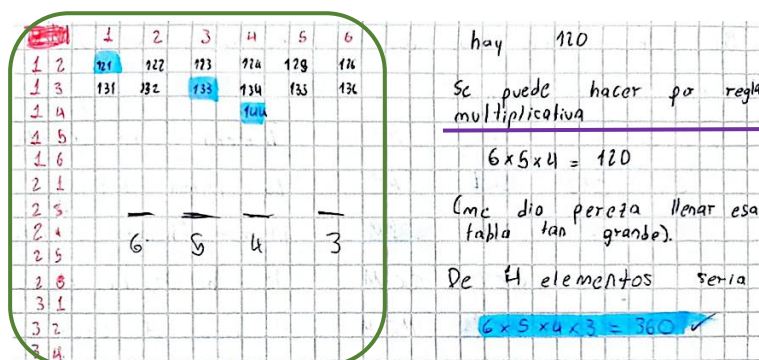 1 2 3 4 5 6
1 2 121 122 123 124 125 126
1 3 131 132 133 134 135 136
1 4 144
1 5
1 6
2 1
2 3
2 4
2 5
2 6
3 1
3 2
3 4
6 5 4 3
hay 120
Se puede hacer por regla
multiplicativa
6 x 5 x 4 = 120
(me dio pereza llenar esa
tabla tan grande).
De 4 elementos seria
6 x 5 x 4 x 3 = 360 ✓